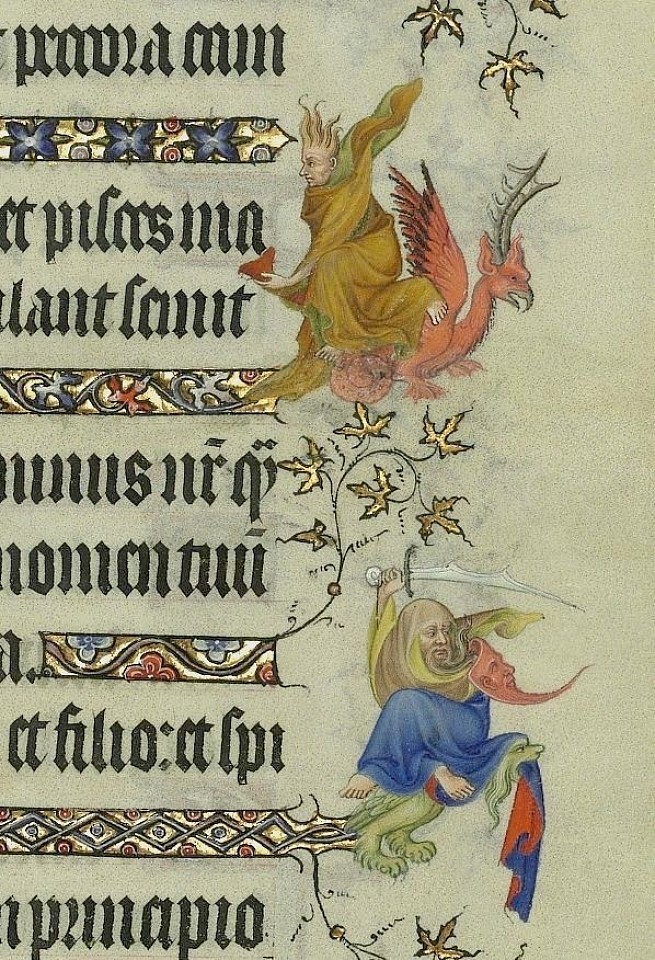 t pecora cam
et pisces ma
ulant semit
minus nr̄ q̄
nomen tuū
a.
et filio: et spi
n principio